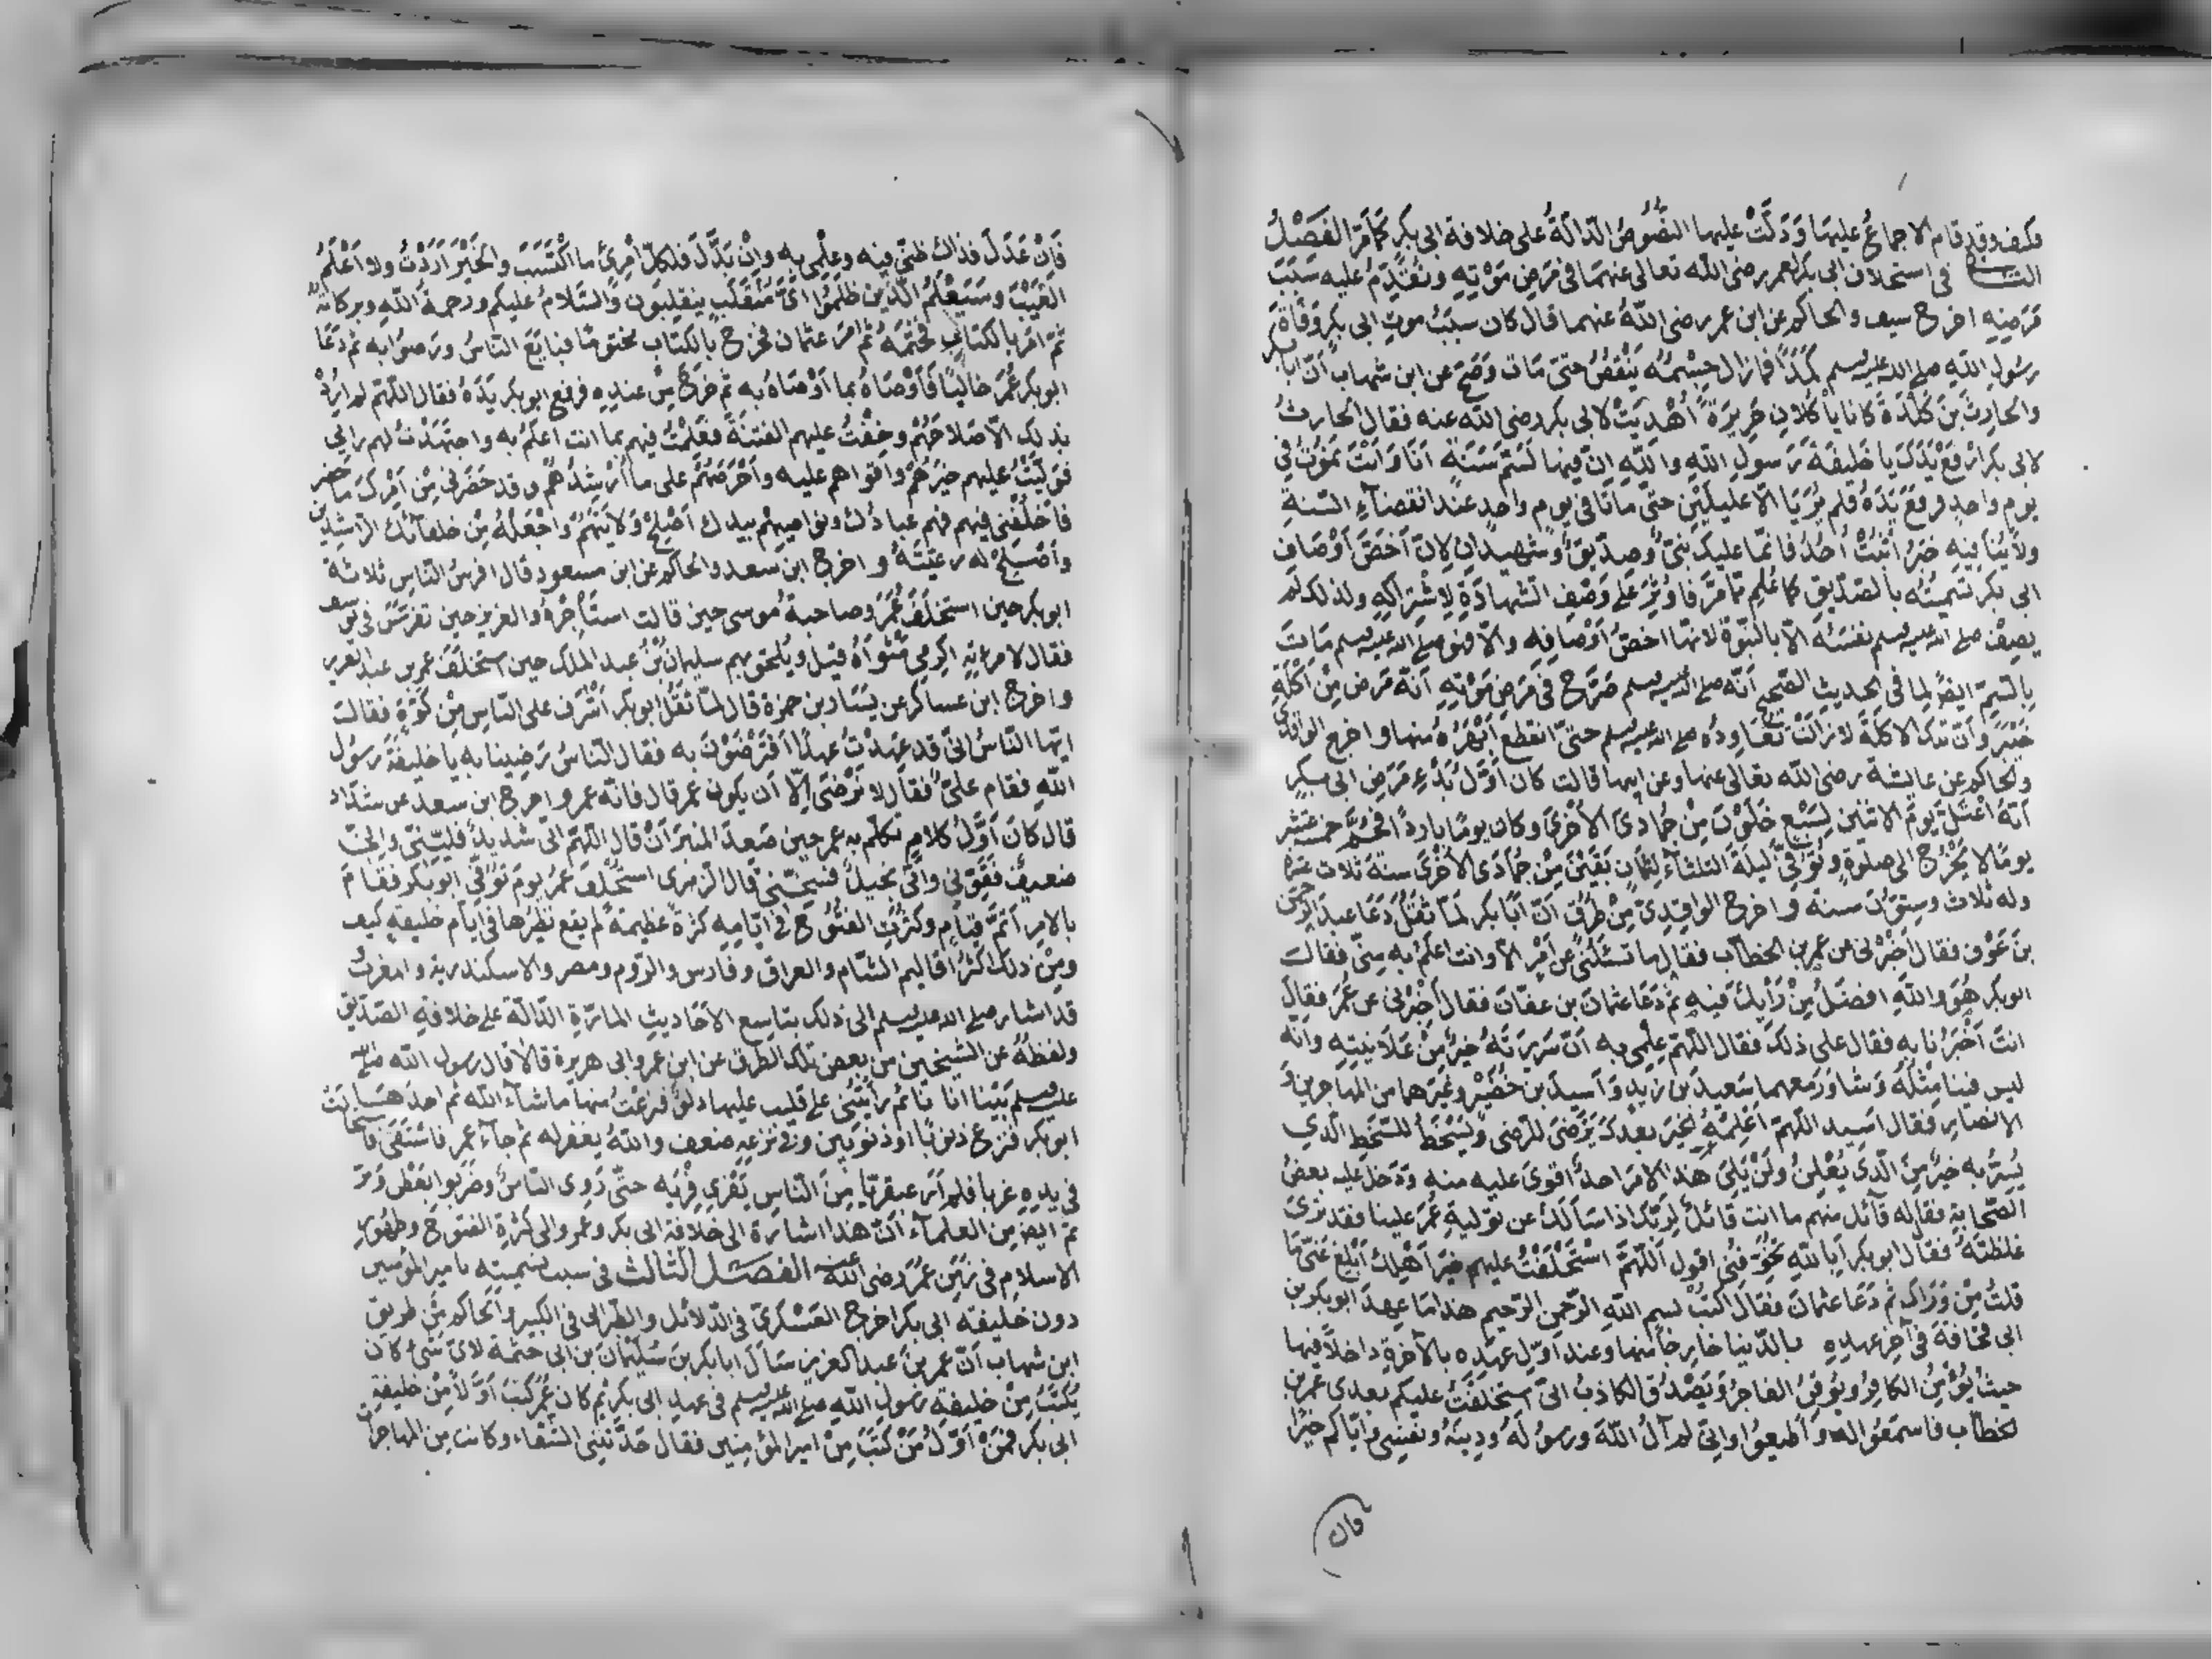 فكيف وقد قام الاجماع عليها وَدَلَّتْ عليها النصُوصُ الدّالّةُ على خلافة ابى بكر كَمَا مَرّ الفَصْلُ
الثانى فى استخلاف ابى بكر لعمر رضى الله تعالى عنهما فى مَرَضِ مَوْتِهِ ونقَدّم عليه سَبَبَ
مَرَضِهِ اخرج سيف والحاكم عن ابن عمر رضى اللهُ عنهما قال كان سبَبُ موتِ ابى بكر وَفاةَ
رسُولِ اللهِ صلى الله عليه وسلم كَمَدًا فما زال جِسْمُه يَنْقُصُ حتى مات وَصَحّ عن ابن شهاب أنّ ابا بكر
والحارِثَ بنَ كَلَدَةَ كانا يأكُلان حَرِيرَةً أُهْدِيَتْ لابى بكر رضى الله عنه فقال الحارثُ
لابى بكر ارْفَعْ يَدَكَ يا خَليفَةَ رَسولِ اللهِ واللهِ انّ فيها لَسَمَّ سَنَةٍ أنَا وَأنتَ نَمُوتُ فى
يومٍ واحدٍ فرفعَ يَدَهُ فلم يَزَالا عليلَيْنِ حتى ماتا فى يومٍ واحدٍ عند انقضآءِ السّنةِ
ولا يُنافيه خَبَرُ اُثْبُتْ اُحُدُ فانما عليك نبىّ وصدّيق وشَهيدانِ لانّ اَخَصَّ اَوْصَافِ
ابى بكر تسميتُه بالصّدّيقِ كما عُلِم ممّا مَرّ فاُوثِرَ على وَصْفِ الشهادَةِ لاِشْتِراكِهِ ولذلك لم
يصِفْ صلى الله عليه وسلم نفسَه الّا بالنبّوةِ لانها اخصُّ اَوْصَافِه والّا فهو صلى الله عليه وسلم مَاتَ
بالسَّمِّ ايضًا لِما فى الحديثِ الصّحيح أنّه صلى الله عليه وسلم صَرَّحَ فى مَرَضِ مَوْتِهِ اَنّه مَرضَ مِنْ اَكْلَةِ
خَيْبَرَ وأنّ تلك الاكلَةَ لا زالتْ تُعَاوِدُه صلى الله عليه وسلم حتىّ انقطع أَبْهَرُهُ منها واخرج الواقدى
والحاكم عن عايشة رضى الله تعالى عنها وعن ابيها قالت كان اَوّلُ بَدْءِ مَرَضِ ابى بكر
أنّه اغْتَسَلَ يومَ الاثنين لِسَبْعٍ خَلَوْنَ مِنْ جُمادَى الاُخْرَى وكان يومًا باردًا فحُمَّ خمسةَ عشر
يومًا لا يَخْرُج الى صلوةٍ وتُوُفّىَ ليلةَ الثلثآء لِثمانٍ بَقَيْنَ مِنْ جُمَادَى الاُخْرَى سنَةَ ثلاث عشرة
وله ثلاث وستون سنة واخرج الواقِدِىّ مِنْ طُرُقٍ اَنّ اَبَا بكر لمّا ثقُلَ دَعَا عبدَ الرحمن
بنَ عَوْفٍ فقال اَخْبِرْنى عن عمرِ بن الخطاب فقال ما تسْئَلُنى عن اَمْرٍ الّا وانت اعلَمُ به مِنّى فقال
ابو بكر هُوَ واللهِ افضَلُ مِنْ رَأْيِكَ فيه ثم دَعَا عثمانَ بن عفّانَ فقال اَخْبِرْنى عن عُمَرَ فقال
انتَ اَخْبَرُنا بِه فقال على ذلك فقال اللّهمّ عِلْمِى به اَنّ سَرِيرَتَهُ خيرٌ مِنْ عَلانِيَتِهِ وانّه
ليس فينا مِثْلُهُ وَشاوَرَ معهما سَعيدَ بن زيدٍ وَاُسيدَ بن حُضَيْرٍ وغيرَهما من المهاجرين وَ
الانصارِ فقال اُسَيد اللهمّ اَعْلَمُهُ الخَيرَ بعدَكَ يَرْضَى للرّضى ويَسْخَطُ للسّخطِ الّذى
يُسِرُّ به خيرٌ مِنَ الّذى يُعْلِنُ ولَنْ يَلِىَ هذا الامرَ احدٌ اقوى عليه منه ودَخل عليه بعضُ
الصّحابةِ فقال له قآئل منهم ما انت قائلٌ لِربّك اذا سَاَلَكَ عن تَوْليةِ عُمَرَ علينا فقد ترَى
غلظتَهُ فقال ابو بكر أبَاللهِ تُخَوّفُنِى اقول اَللّهمّ اسْتَخْلَفْتُ عليهم خيرَ اَهْلِكَ أبْلِغْ عَنّى ما
قلتُ مَنْ وَرَاءَك ثم دَعَا عثمانَ فقال اكتُبْ بسم اللهِ الرّحمنِ الرّحيم هذا مَا عَهِدَ ابو بكر بن
ابى قحافةَ فى آخِرِ عهدِهِ بالدّنيا خارِجًا منها وعند اَوّلِ عهْدِه بالآخرةِ داخلًا فيها
حيث يُؤْمِنُ الكافِرُ ويُوقِنُ الفاجرُ وَيَصْدُق الكاذبُ انّى استخلَفْتُ عليكم بعدى عمرَ بن
الخطّاب فاسمَعُوا له وَأطيعوا وانّى لم آلُ اللهَ ورسُولَهُ ودينَهُ ونفسى وايّاكم خَيْرًا
فان
فَاِنْ عَدَلَ فذاك ظنّى فيه وعِلْمِى به واِنْ بَدَّلَ فلكلّ امْرِئٍ ما اكْتَسَبَ والخَيْرَ اَرَدْتُ ولا اَعْلَمُ
الغَيْبَ وسَيَعْلَمُ الّذين ظلَمُوا اَىَّ مُنْقَلَبٍ ينقلِبُون والسّلامُ عليكم ورحمةُ اللهِ وبركاتهُ
ثمّ اَمَرَ بالكتابِ فَخَتَمَهُ ثم امَرَ عثمان فخرَجَ بالكتاب مختومًا فبايَعَ النّاسُ ورَضوا به ثم دَعَا
ابو بكر عُمَرَ خاليًا فَاَوْصَاهُ بما اَوْصَاهُ به ثم خرجَ مِنْ عندِه فرفع ابو بكر يَدَهُ فقال اللّهمّ لم اُرِدْ
بذلك الّا صَلاحَهُمْ وخِفْتُ عليهم الفتنةَ فعَمِلْتُ فيهم بما انت اعلَمُ به واجتهَدْتُ لهم رايى
فولَّيْتُ عليهم خيرَهُمْ واقواهم عليه واَحْرَصَهُمْ على ما أرْشَدَهُمْ وقد حَضَرَنى مِنْ اَمْرِكَ ما حضر
فاخْلُفْنى فيهم فهم عبادُك ونواصِيهمْ بيدك اَصْلِحْ وُلَاتَهُمْ واجْعَلْهُ مِنْ خلفآئك الرّاشدين
وأَصْلِحْ له رعيّتَهُ واخرج ابن سعد والحاكم عن ابن مسعود قال افرسُ النّاسِ ثلاثة
ابو بكر حين استخلَفَ عُمَرَ وصاحبةُ مُوسى حين قالت استأجِرْهُ والعزيز حين تفرّسَ فى يوسف
فقال لامراتِهِ اَكرِمى مَثْوَاهُ قيل ويُلحق بهم سليمانُ بْنُ عبد الملك حين استخلَفَ عمر بن عبد العزيز
واخرج ابن عساكر عن يَسَار بن حمزة قال لمّا ثَقُلَ ابو بكر اَشْرَفَ على النّاسِ مِنْ كَوّةٍ فقالت
ايّها النّاسُ انّى قد عَهِدْتُ عهدًا اَفتَرْضَوْنَ به فقال النّاسُ رَضِينا به يا خليفةَ رسُول
اللهِ فقام علىٌّ فقال لا نَرْضَى اِلّا اَن يكون عمر قال فانّه عمر واخرج ابن سعد عن شدّاد
قال كانَ اَوَّلُ كلامٍ تكلّم به عمر حين صَعِدَ المنبرَ اَنْ قال اللهمّ انّى شديدٌ فليّنّى وانّى
ضعيفٌ فقَوِّنى وانّى بخيلٌ فسَخِّنى قال الزهرى استُخْلِفَ عمرُ يومَ تُوُفّى ابو بكر فقَامَ
بالامرِ اَتَمَّ قيامٍ وكثُرَتِ الفتُوحُ فى اَيّامِهِ كثرَةً عظيمةً لم يقع نظيرُها فى ايّام خليفةٍ كيف
ومِنْ ذلك اكثرُ اقاليم الشّام والعراق وفارس والرّوم ومصر والاسكندرية والمغربُ
قد اشار صلى الله عليه وسلم الى ذلك بتاسِعِ الاَحَاديثِ المارّةِ الدّالّةِ على خلافةِ الصّدّيق
ولفظُهُ عن الشيخين من بعض تلك الطرق عن ابن عمر وابى هريرة قالا قال رسول الله صلى الله
عليه وسلم بَيْنا اَنا نَائم رأيتُنى على قليب عليها دلوٌ فنزعْتُ منها ما شآءَ الله ثم اَخذها
ابو بكر فنَزعَ ذَنوبًا او ذنوبَين وفى نزعِهِ ضعف واللهُ يغفر له ثم جآءَ عمر فاستَقَى فاستحالَتْ
فى يدِهِ غربًا فلم اَرَ عبقريًّا مِنَ النّاسِ يَفْرِى فَرْيَه حتّى رَوِىَ النّاسُ وضَربوا بعَطَنٍ وَمَرّ
ثَمّ ايضًا مِن العلمآء اَنّ هذا اشارة الى خلافة ابى بكر وعمر والى كثرةِ الفتوح وظهور
الاسلامِ فى زَمَنِ عُمَرَ رضى الله عنه الفصل الثالث فى سبب تسميته بامير المؤمنين
دون خليفة ابى بكر اخرج العَسْكرىّ فى الدّلائل والطبرانى فى الكبير والحاكم مِن طريق
ابن شهاب اَنّ عمر بنَ عبد العزيز سَأَلَ ابا بكرِ بنَ سُلَيْمانَ بن ابى حثمة لاىّ شىءٍ كان
يُكتَبُ مِنْ خليفةِ رسُولِ اللهِ صلى الله عليه وسلم فى عهدِ ابى بكر ثم كان عُمَرُ كَتبَ اَوَّلًا مِنْ خليفةِ
ابى بكر فمَنْ اَوّلُ مَنْ كتَبَ مِنْ امير المؤمنين فقال حَدَّثَتْنى الشّفاء وكانت من المهاجرات